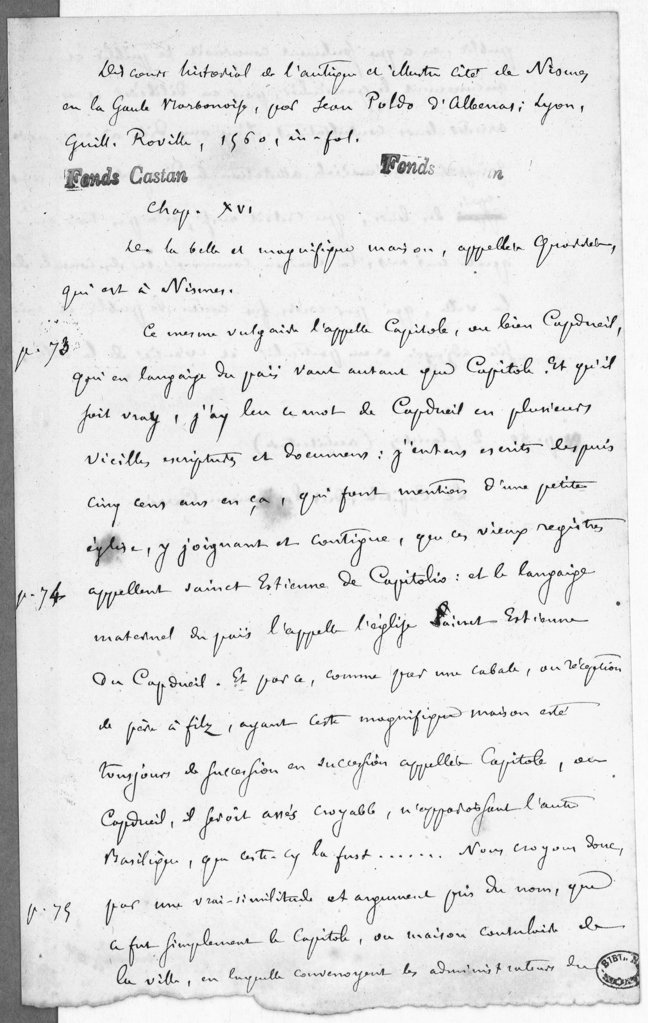 Discours historial de l'antique et illustre cité de Nismes
en la Gaule Narbonoise, par Jean Poldo d'Albenas; Lyon,
Guill. Roville, 1560, in-fol.
Fonds Castan
Fonds n
Chap. XVI
De la belle et magnifique maison, appellée Quarrée,
qui est à Nismes.
p. 73
Ce mesme vulgaire l'appelle Capitole, ou bien Capdueil,
qui en langaige du païs vaut autant que Capitole. Et qu'il
soit vray, j'ay leu ce mot de Capdueil en plusieurs
vieilles escriptures et documens: j'entens escrits despuis
cinq cens ans en ça, qui font mention d'une petite
église, y joignant et contigue, que ces vieux registres
p. 74
appellent sainct Estienne de Capitolio: et le langaige
maternel du païs l'appelle l'église Sainct Estienne
du Capdueil. Et parce, comme par une cabale, ou réception
de père à filz, ayant ceste magnifique maison esté
tousjours de succession en succession appellée Capitole, ou
Capdueil, il seroit assés croyable, n'apparoissant l'autre
Basilique, que ceste-cy la fust....... Nous croyons donc,
p. 75
par une vrai-similitude et argument pris du nom, que
ce fut simplement le Capitole, ou maison consulaire de
la ville, en laquelle convenoyent les administrateurs du
BIBL